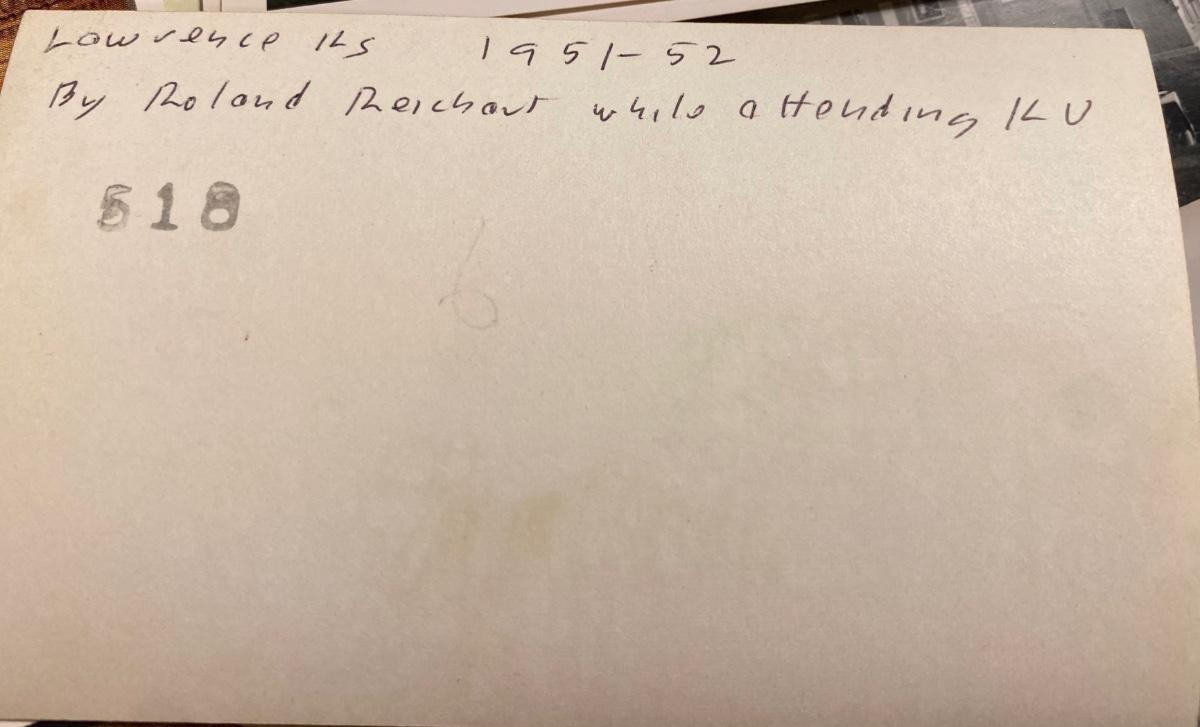 Lawrence Ks 1951-52
By Roland Reichart while attending KU
518
6